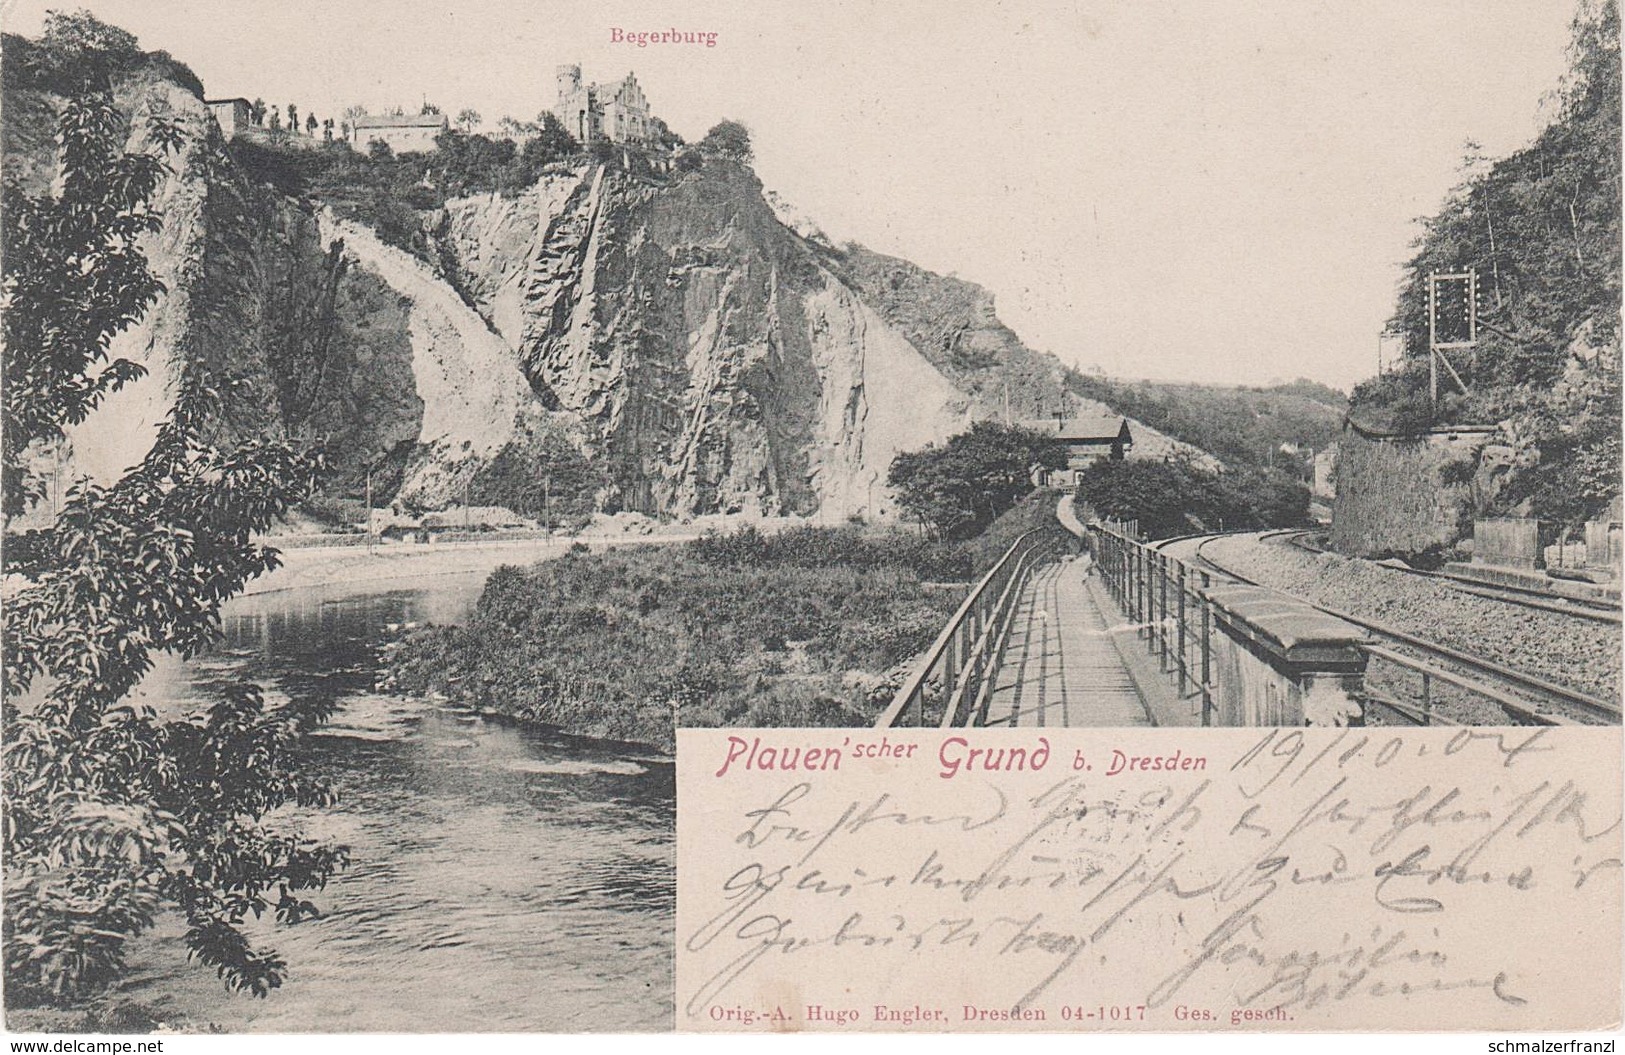 Begerburg
Plauen'scher Grund b. Dresden
19/10.04
Besten Gruß u. herzlichste
Glückwünsche zu Erna's
Geburtstag. Familie
Böhme
Orig.-A. Hugo Engler, Dresden 04-1017 Ges. gesch.
www.delcampe.net
schmalzerfranzl